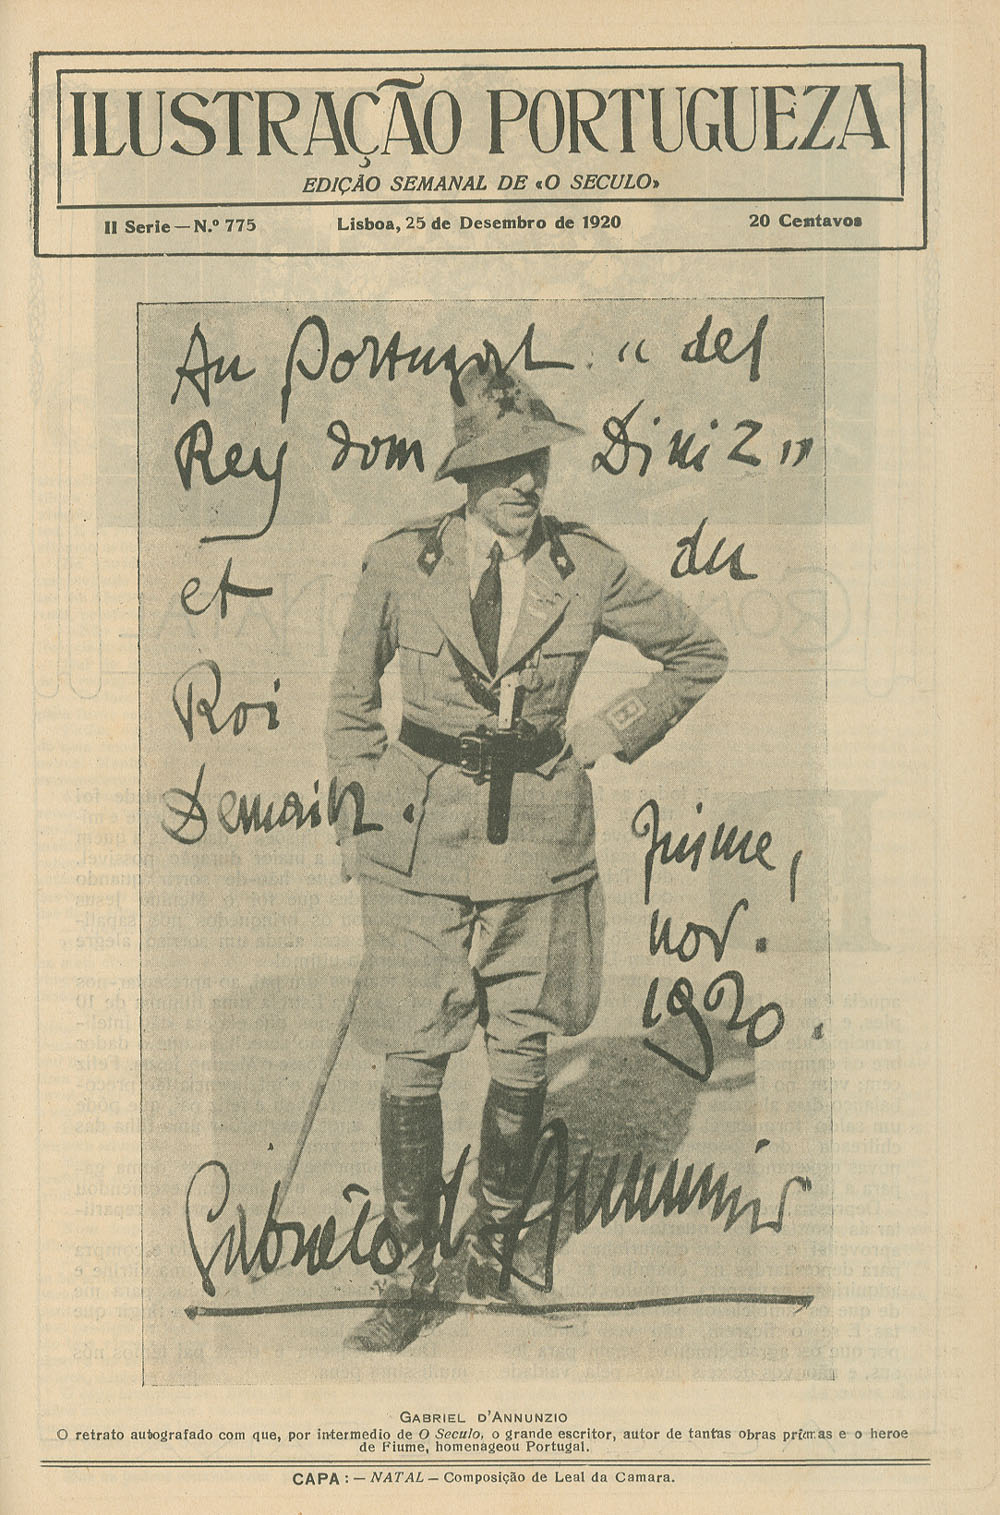 ILUSTRAÇÃO PORTUGUEZA
EDIÇÃO SEMANAL DE «O SECULO»
II Serie — N.º 775 Lisboa, 25 de Desembro de 1920 20 Centavos
Au Portugal "del
Rey dom Diniz"
et du
Roi
Demain.
Fiume,
nov.
1920.
Gabriele d'Annunzio
GABRIEL D'ANNUNZIO
O retrato autografado com que, por intermedio de O Seculo, o grande escritor, autor de tantas obras primas e o heroe
de Fiume, homenageou Portugal.
CAPA: — NATAL — Composição de Leal da Camara.